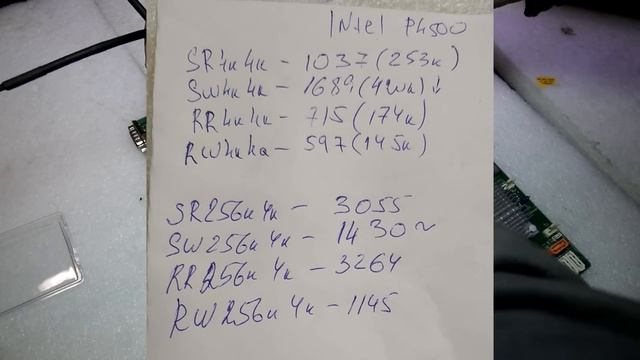 Intel P4500
SR4к4к - 1037 (253к)
SW4к4к - 1689 (420к) ↓
RR4к4к - 715 (174к)
RW4к4к - 597 (145к)
SR256к4к - 3055
SW256к4к - 1430~
RR256к4к - 3264
RW256к4к - 1145